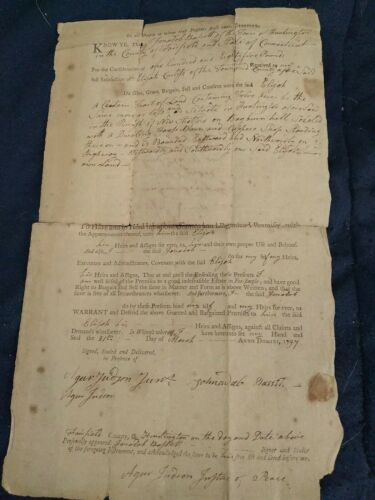 To all People to whom these Presents shall come, GREETING.
KNOW YE, That I Jonadab Basset of the Town of Huntington
in the County of Fairfield and State of Connecticut
For the Consideration of one hundred and Eighty five Pounds
Received to my
full Satisfaction of Elijah Curtiss of the Town and County aforesaid
Do Give, Grant, Bargain, Sell and Confirm unto the said Elijah
A Certain Tract of Land Containing four acres be the
Same more or less and Situate in Huntington aforesaid
in the Parish of New Stratford on
with a Dwelling House Barn and Coopers Shop Standing
thereon and is Bounded Eastward and Northerly on
Highway Westwardly and Southwardly on Said Elijah's
own Land
To Have and to Hold the above Granted and Bargained Premises, with
the Appurtenances thereof, unto him the said Elijah
his Heirs and Assigns for ever, to his and their own proper Use and Behoof.
And also, I the said Jonadab
do for my self my Heirs,
Executors and Administrators, Covenant with the said Elijah
his Heirs and Assigns, That at and until the Ensealing these Presents I
am well seized of the Premises as a good indefeasible Estate in Fee Simple, and have good
Right to Bargain and Sell the same in Manner and Form as is above Written, and that the
same is free of all Incumbrances whatsoever. And furthermore, I the said Jonadab
do by these Presents bind my self and my Heirs for ever, to
WARRANT and Defend the above Granted and Bargained Premises to him the said
Elijah his Heirs and Assigns, against all Claims and
Demands whatsoever. In Witness whereof I have hereunto set my Hand and
Seal the 31st Day of March ANNO DOMINI, 1797
Signed, Sealed and Delivered,
in Presence of
Agur Judson Junr. Jonadab Basset
Agur Judson
Fairfield County, ss Huntington on the day and Date above
Personally appeared Jonadab Basset Signer and Sealer
of the foregoing Instrument, and acknowledged the same to be his free Act and Deed before me.
Agur Judson Justice of Peace